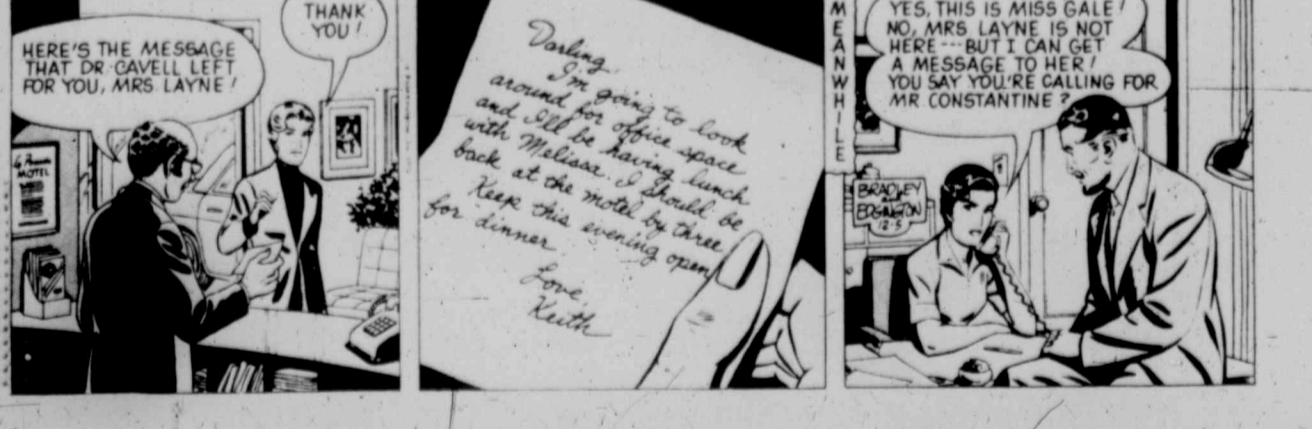 HERE'S THE MESSAGE
THAT DR. CAVELL LEFT
FOR YOU, MRS. LAYNE!
THANK
YOU!
MOTEL
Darling,
I'm going to look
around for office space
and I'll be having lunch
with Melissa. I should be
back at the motel by three.
Keep this evening open
for dinner
Love,
Keith
MEANWHILE
YES, THIS IS MISS GALE!
NO, MRS. LAYNE IS NOT
HERE---BUT I CAN GET
A MESSAGE TO HER!
YOU SAY YOU'RE CALLING FOR
MR. CONSTANTINE?
BRADLEY
AND
EDGINGTON
12-5